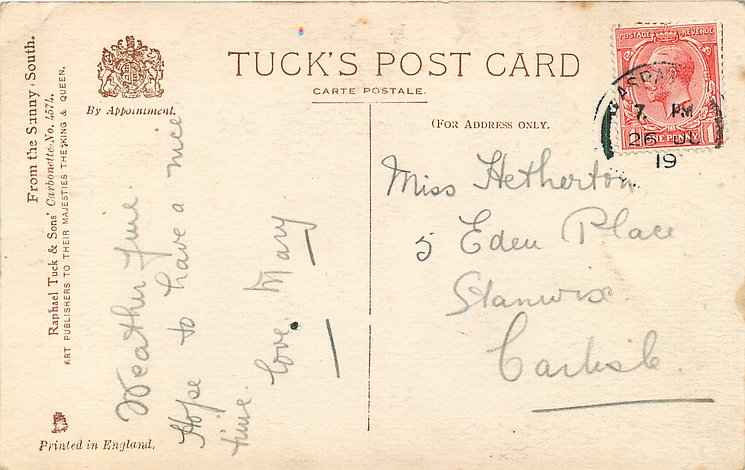 TUCK'S POST CARD
CARTE POSTALE.
By Appointment.
(FOR ADDRESS ONLY.
From the Sunny South.
Raphael Tuck & Sons' Carbonette No. 4574.
ART PUBLISHERS TO THEIR MAJESTIES THE KING & QUEEN.
Printed in England.
Weather fine.
Hope to have a nice
time. Love. Mary
Miss Hetherton
5 Eden Place
Stanwix
Carlisle.
POSTAGE REVENUE
ONE PENNY 1
7. PM
26
19